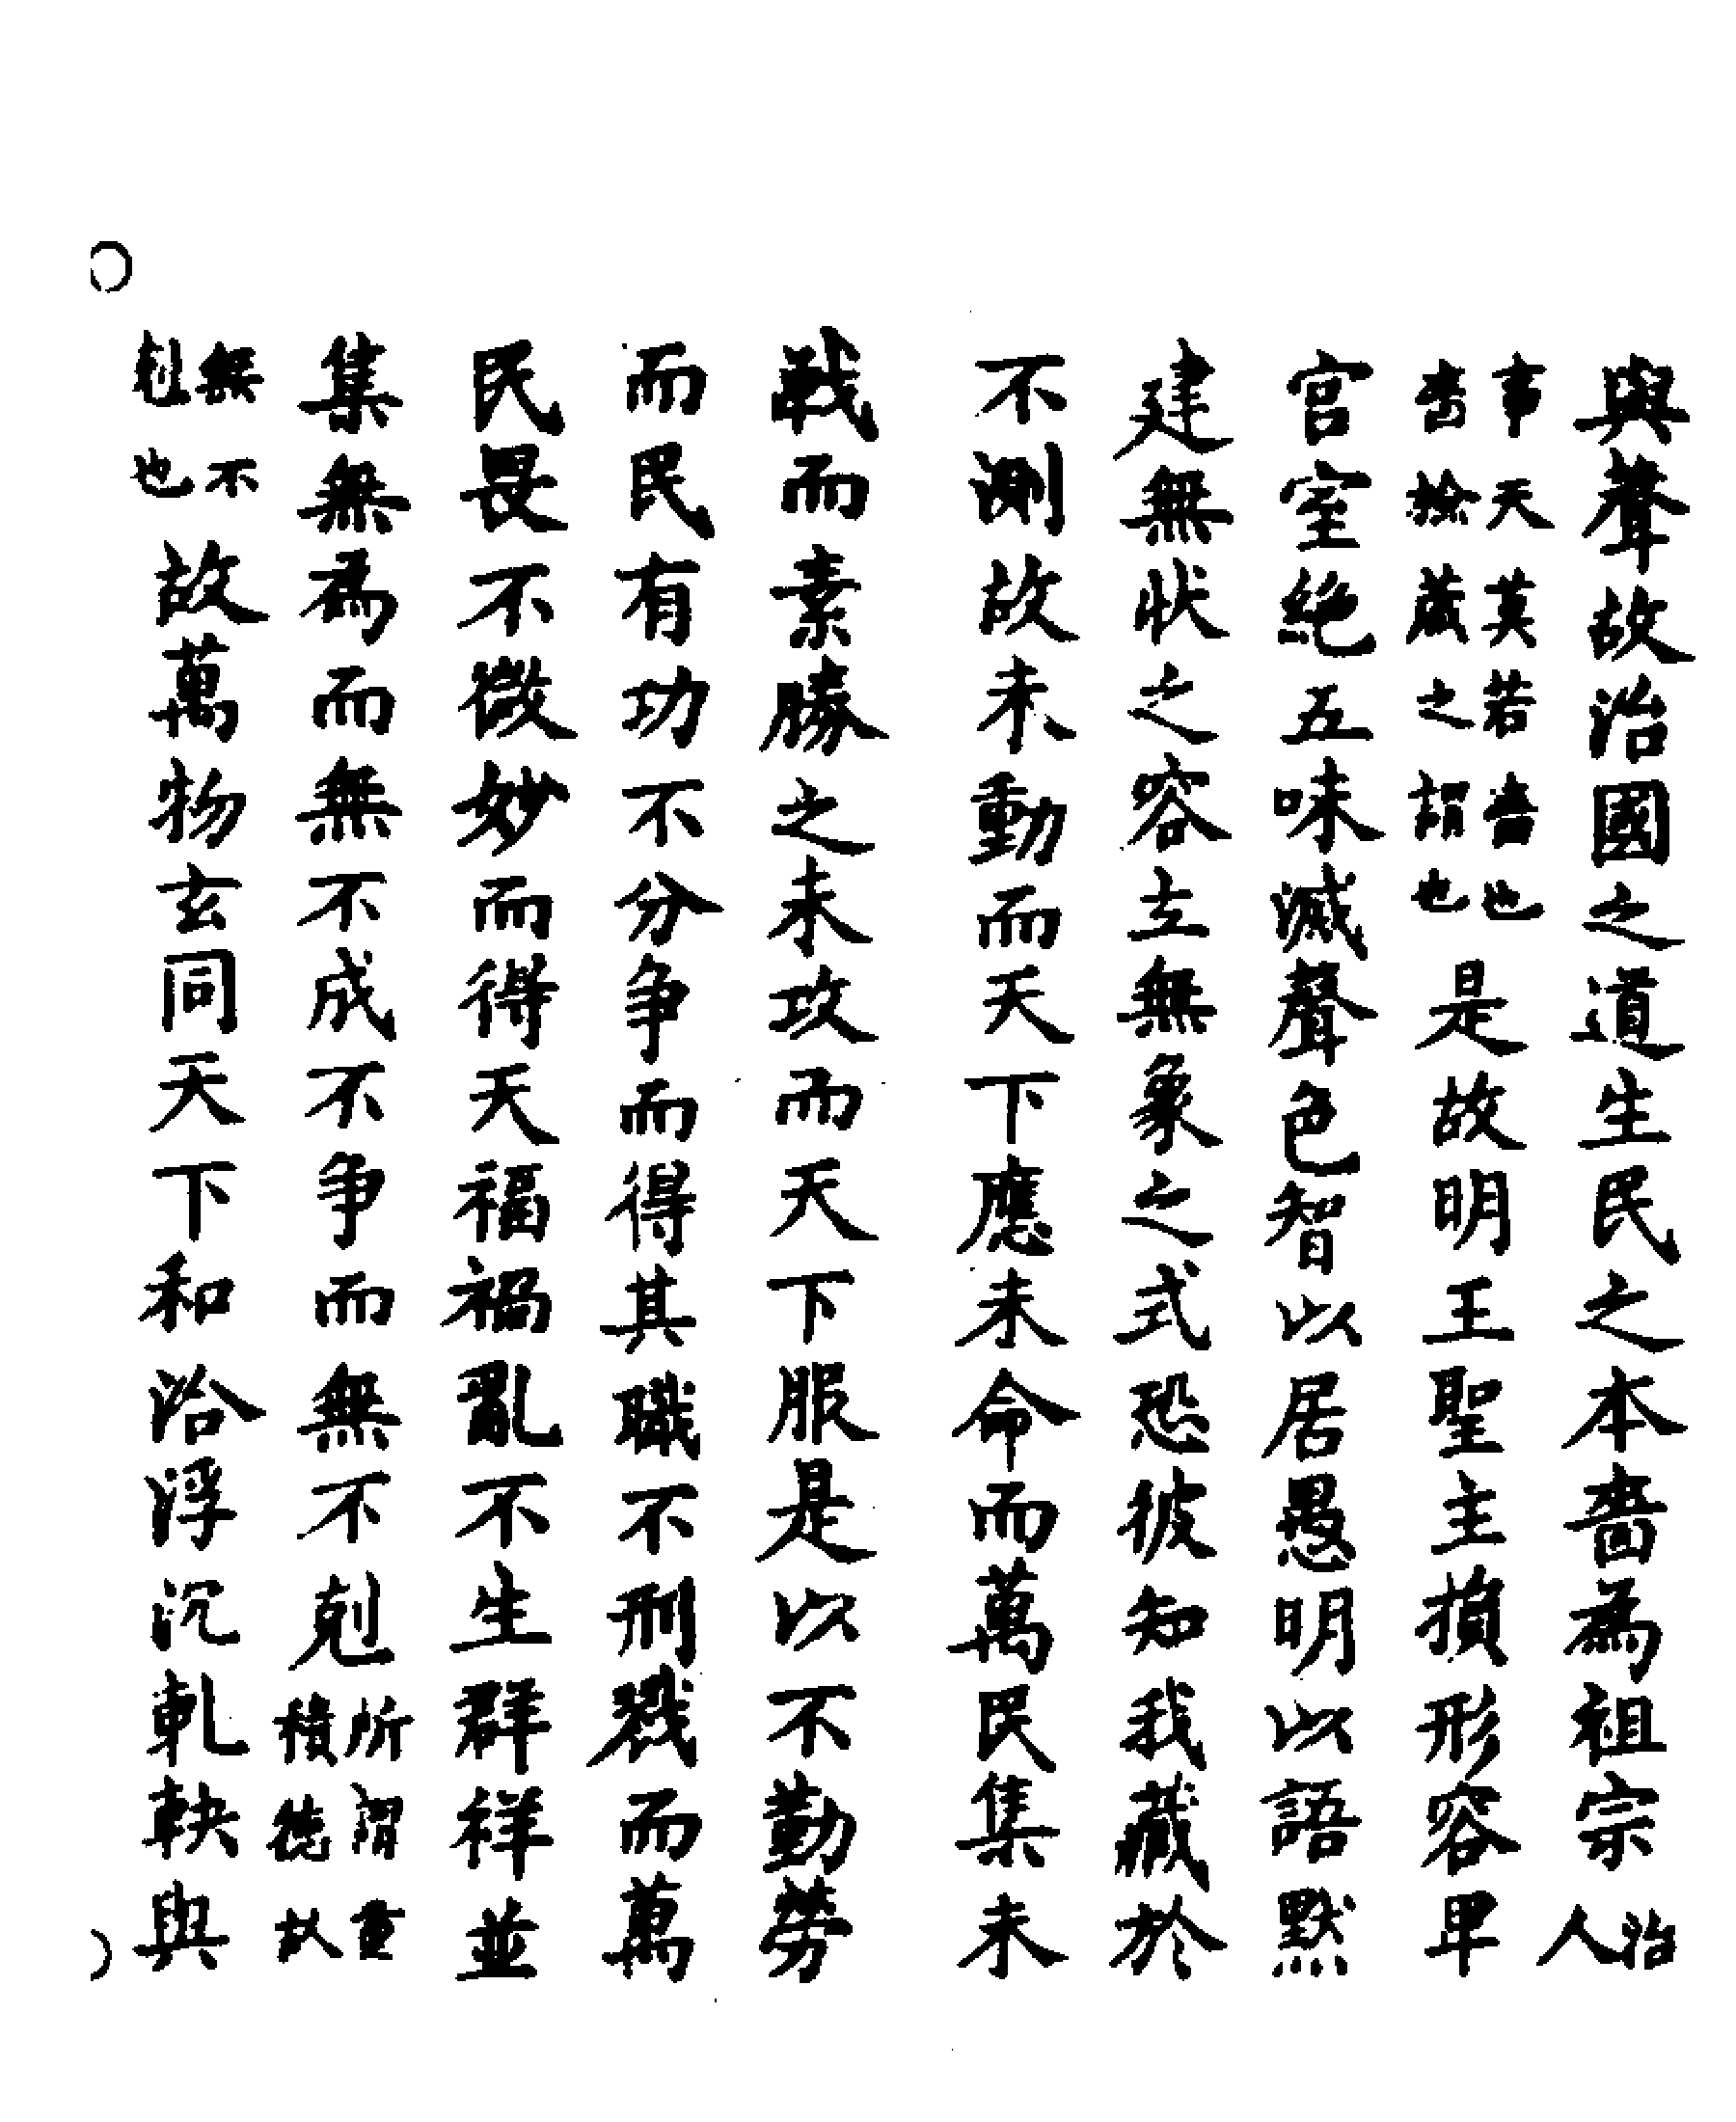 與聲故治國之道生民之本嗇為祖宗治人
事天莫若嗇也嗇撿藏之謂也是故明王聖主損形容卑
宮室絕五味滅聲色智以居愚明以語默
建無狀之容立無象之式恐彼知我藏於
不測故未動而天下應未命而萬民集未
戰而素勝之未攻而天下服是以不勤勞
而民有功不分争而得其職不刑戮而萬
民畏不微妙而得天福禍亂不生群祥並
集無為而無不成不争而無不剋所謂重積德故
無不剋也故萬物玄同天下和洽浮沉軋軮與